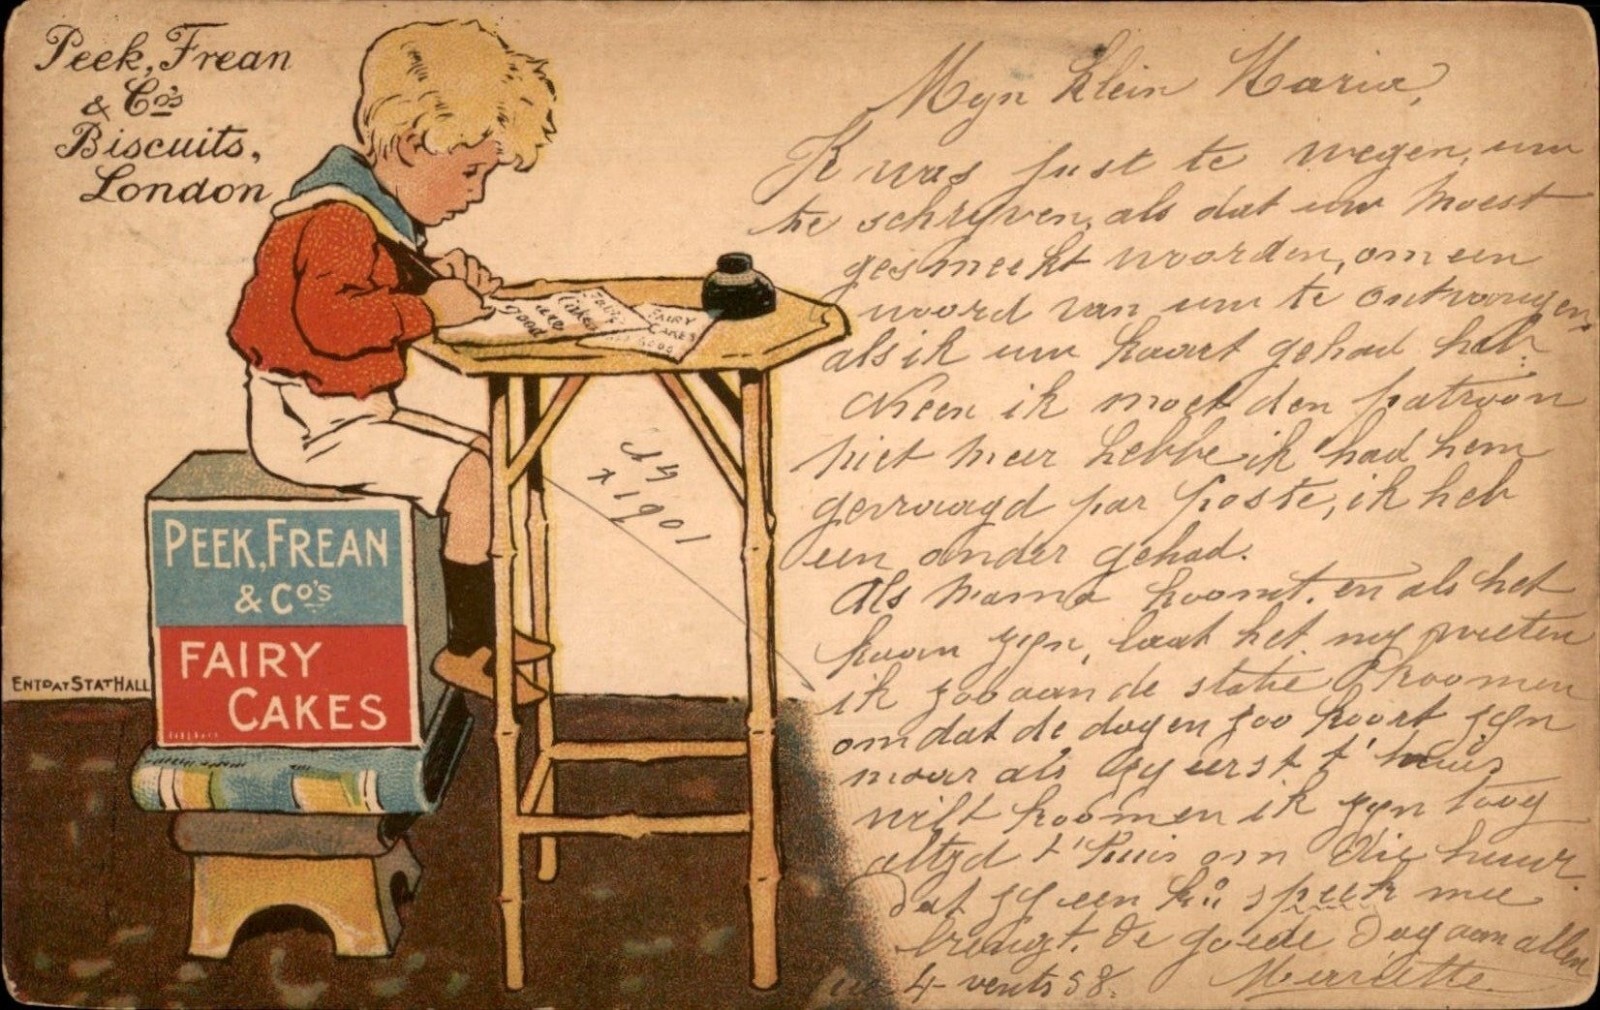 Peek, Frean
& Co's
Biscuits,
London
PEEK, FREAN
& CO'S
FAIRY
CAKES
ENTD AT STAT HALL
Fairy
Cakes
are
good
FAIRY
CAKES
1901
Myn klein Maria,
K was just te wegen, um
te schryven, als dat uw moest
gesmeekt woorden, om een
woord van uw te ontvangen,
als ik uw kaart gehad heb.
Neen ik moet den patroon
niet meer hebbe ik had hem
gevraagd par poste, ik heb
een ander gehad.
Als mama koomt. en als het
kaan zyn, laat het my weeten
ik zoo aan de statie koomen
omdat de dagen zoo koort zyn
maar als gy eerst t'huis
wilt koomen ik zyn toog
altyd t'huis om die huur.
Dat zy een speek mee
brengt. De goede dag aan allen
rue 4 vents 58. Mariette.